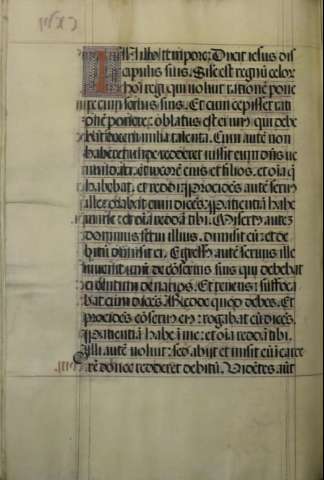 In illo tempore: Dixit iesus dis
cipulis suis. Sile est regnũ celor
hoĩ regi qui uoluit rationẽ pone
re cum seruis suis. Et cum cepisset rati
onẽ ponere: oblatus est ei un9 qui debe
bat decem milia talenta. Cum autẽ non
haberet unde redderet iussit eum dñs ue
nundari: et uxorẽ eius et filios: et oĩa q̃
habebat, et reddi. Procidẽs autẽ seru9
ille: orabat eum dicẽs: Patientiã habe
in me: et oĩa reddã tibi. Misert9 autẽ
dominus serui illius. dimisit eũ: et de
bitũ dimisit ei. Egress9 autẽ seruus ille
inuenit unũ de cõseruis suis qui debebat
ei centum denarios. Et tenens: suffoca
bat eum dicẽs. Redde quod debes. Et
procidẽs cõseru9 ei9: rogabat eũ dicẽs.
Patientiã habe in me: et oĩa reddã tibi.
Ille autẽ noluit: sed abijt et misit eũ ĩ carce
rẽ donec redderet debitũ. Vidẽtes aũt